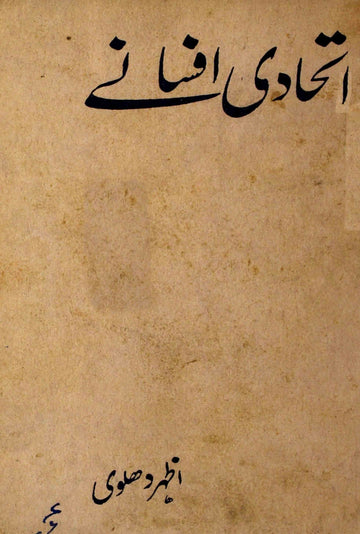 اتحادی افسانے
اظہر دھلوی